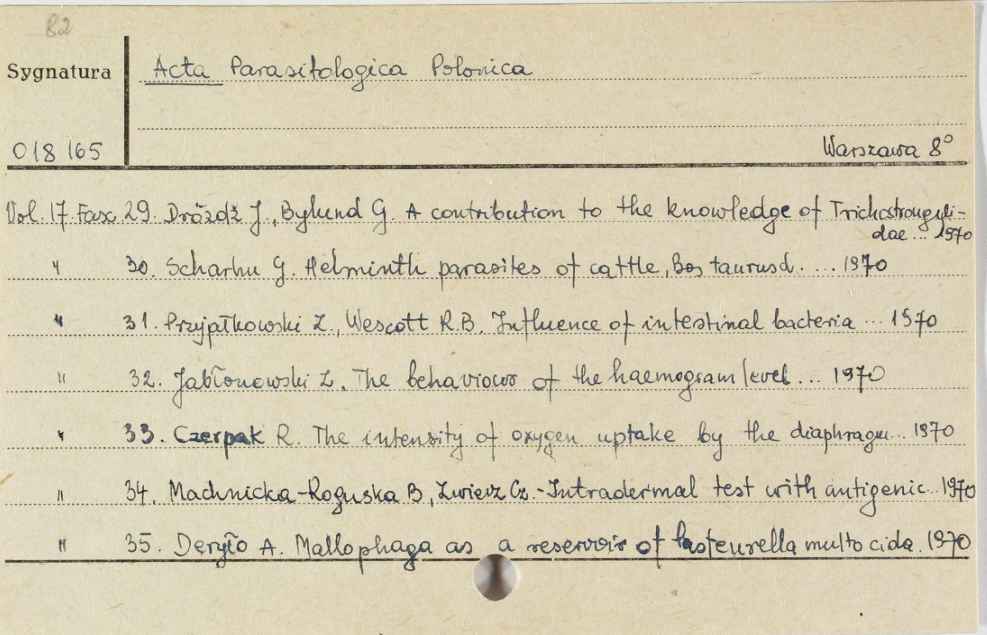 82
Sygnatura
Acta Parasitologica Polonica
018 165
Warszawa 8°
Vol. 17. Fasc. 29. Dróżdż J., Bylund G. A contribution to the knowledge of Trichostrongyli-
dae ... 1970
" 30. Scharhu G. Helminth parasites of cattle, Bos taurusd. ... 1970
" 31. Przyjałkowski Z., Wescott R.B. Influence of intestinal bacteria ... 1970
" 32. Jabłonowski Z. The behaviour of the haemogram level ... 1970
" 33. Czerpak R. The intensity of oxygen uptake by the diaphragm ... 1970
" 34. Machnicka-Roguska B, Zwierz Cz. - Intradermal test with antigenic ... 1970
" 35. Deryło A. Mallophaga as a reservoir of Pasteurella multocida. 1970